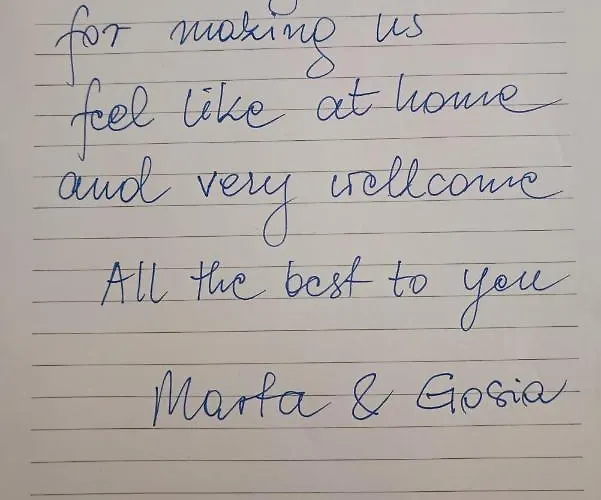 for making us
feel like at home
and very wellcome
All the best to you
Marta & Gosia